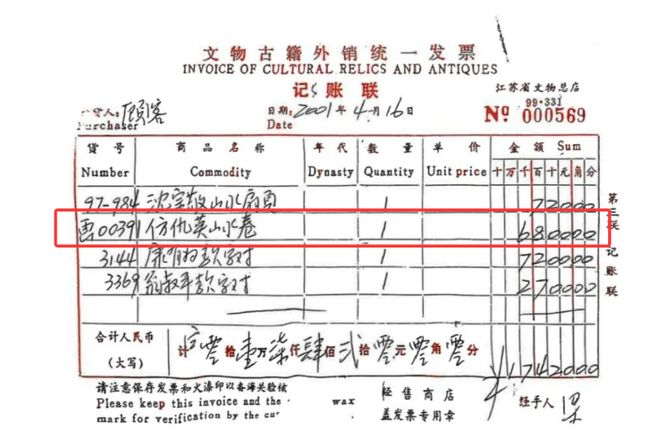 文物古籍外销统一发票
INVOICE OF CULTURAL RELICS AND ANTIQUES
记 账 联
江苏省文物总店
货人：顾客 日期：2001年4月16日 99·331
Purchaser Date Nº 000569
货号 商品名称 年代 数量 单价 金额 Sum
Number Commodity Dynasty Quantity Unit price 十万千百十元角分
97-984 沈宗敬山水扇页 1 72000
00391 仿仇英山水卷 1 680000
3144 款字对 1 720000
3369 翁叔平款字对 1 270000
第三联 记账联
合计人民币
（大写） 计 零拾壹万柒仟肆佰贰拾零元零角零分 ¥1742000
请注意保存发票和火漆印以备海关验候 经售商店 经手人
Please keep this invoice and the wax 盖发票专用章
mark for verification by the cu